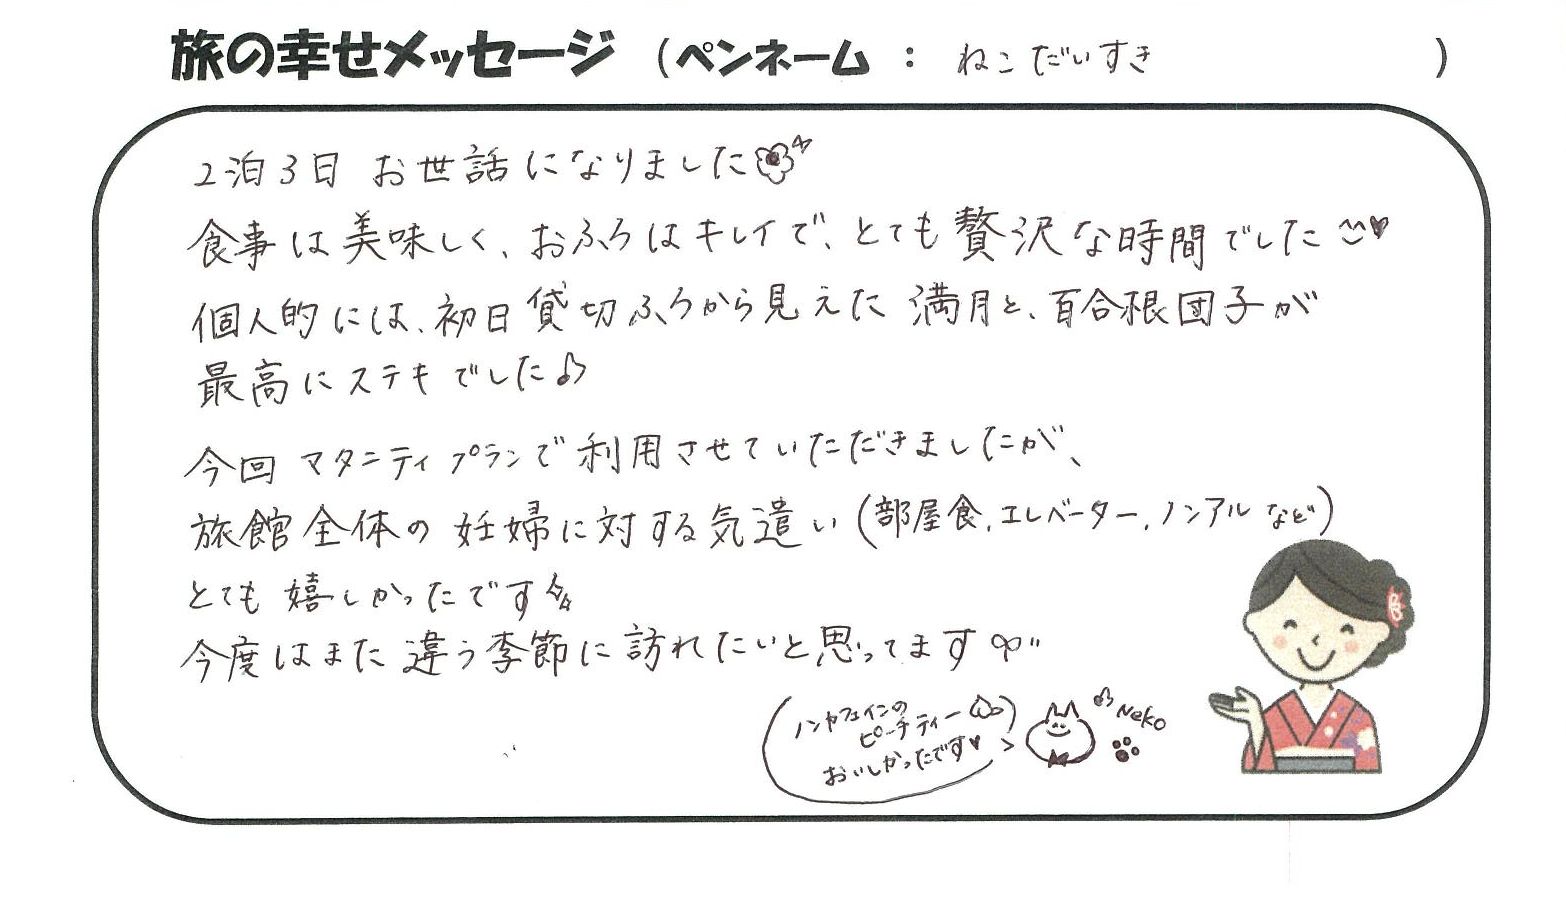 旅の幸せメッセージ (ペンネーム : ねこだいすき )
2泊3日 お世話になりました
食事は美味しく、おふろはキレイで、とても贅沢な時間でした
個人的には、初日貸切ふろから見えた 満月と、百合根団子が
最高にステキでした♪
今回 マタニティプランで利用させていただきましたが、
旅館全体の妊婦に対する気遣い(部屋食、エレベーター、ノンアルなど)
とても嬉しかったです
今度はまた違う季節に訪れたいと思ってます
ノンカフェインの
ピーチティー
おいしかったです♥
♪Neko